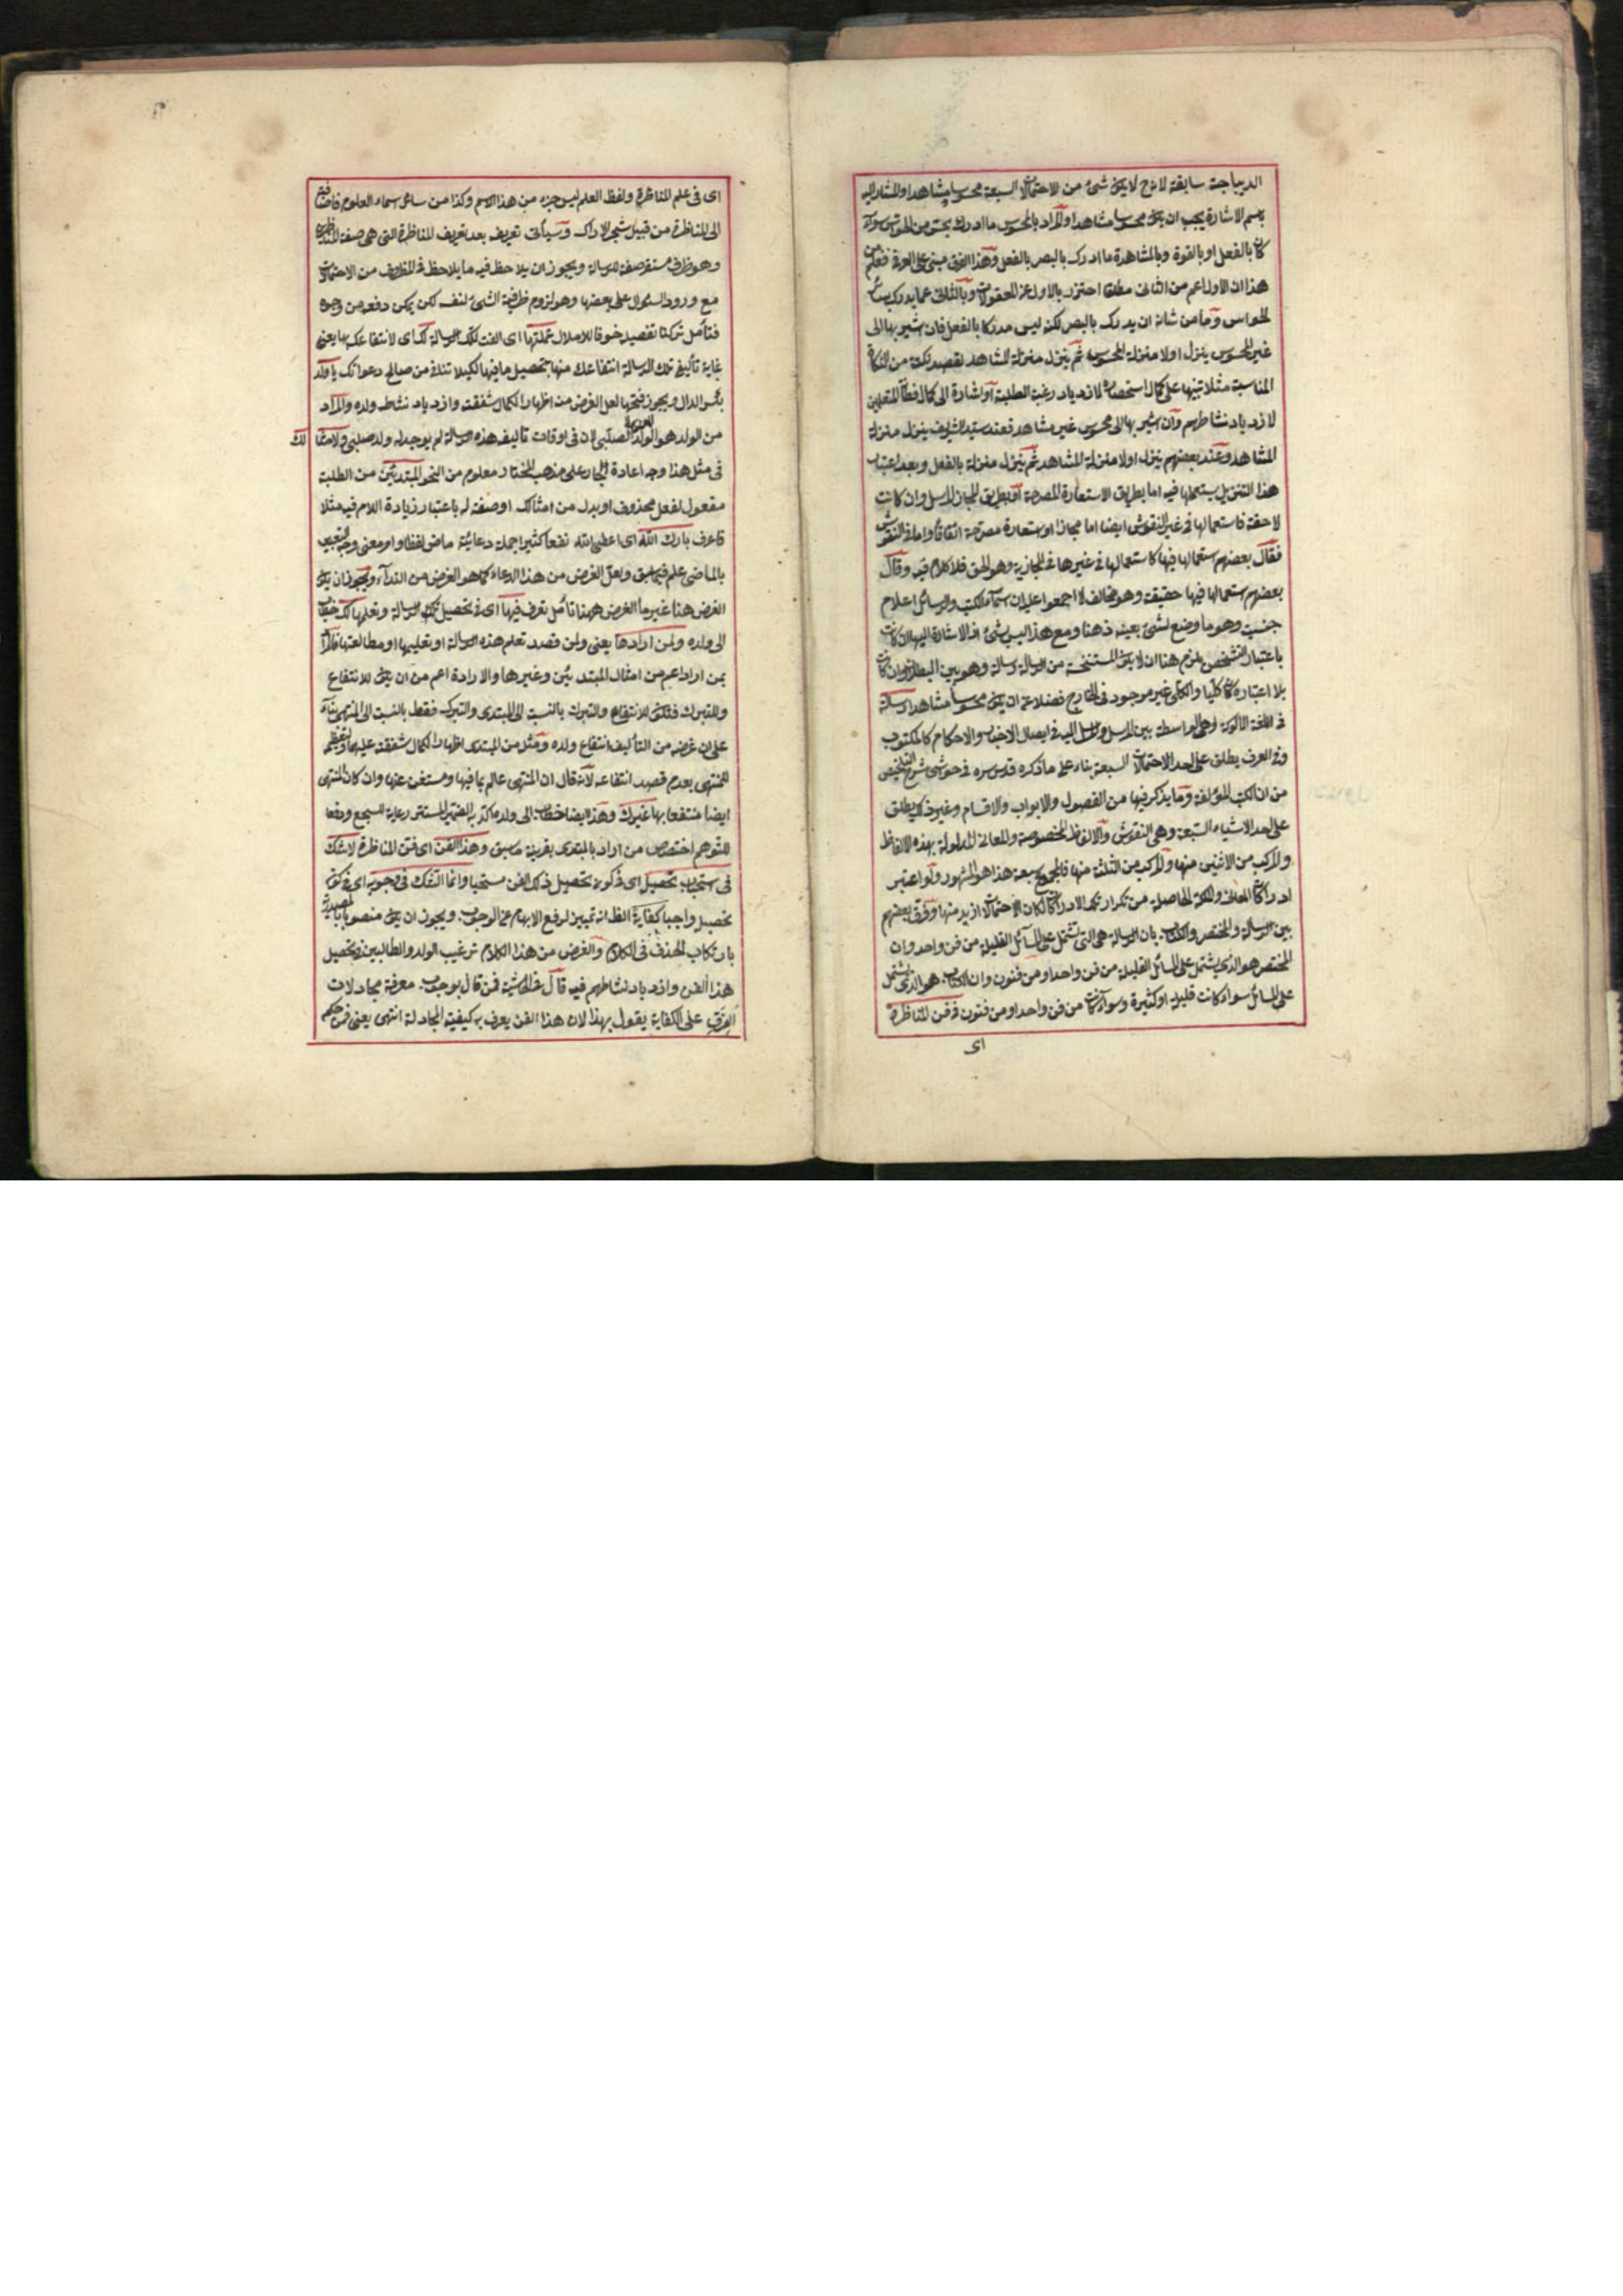 الديباجة سابقة لانه ح لا يكون شئ من الاحتمالات السبعة محسوسا مشاهدا والمشار اليه
باسم الاشارة يجب ان يكون محسوسا مشاهدا والمراد بالمحسوس ما ادرك بحس من الحواس سواء
كان بالفعل او بالقوة وبالمشاهدة ما ادرك بالبصر بالفعل وهذا الفرق مبنى على العرف فعلم من
هذا ان الاول اعم من الثانى مطلقا احترز بالاول عن المعقولات وبالثانى عما يدرك بسائر
الحواس وما من شانه ان يدرك بالبصر لكنه ليس مدركا بالفعل فان اشير بها الى
غير المحسوس ينزل اولا منزلة المحسوس ثم ينزل منزلة المشاهد لقصد نكتة من النكات
المناسبة مثلا تنبيها على كمال استحضاره لازدياد رغبة الطلبة او اشارة الى كمال فطانة المتعلمين
لازدياد نشاطهم وان اشير بها الى محسوس غير مشاهد فعند سيد الشريف ينزل منزلة
المشاهد وعند بعضهم ينزل اولا منزلة المشاهد ثم ينزل منزلة بالفعل وبعد اعتبار
هذا التنزيل يستعملها فيه اما بطريق الاستعارة المصرحة او بطريق المجاز المرسل وان كانت
لاحقة فاستعمالها فى غير النقوش ايضا اما مجاز او استعارة مصرحة اتفاقا واما فى النقوش
فقال بعضهم استعمالها فيها كاستعمالها فى غيرها فى المجازية وهو الحق فلا كلام فيه وقال
بعضهم استعمالها فيها حقيقة وهو مخالف لما اجمعوا عليه ان اسماء الكتب والرسائل اعلام
جنسية وهو ما وضع لشئ بعينه ذهنا ومع هذا ليس بشئ اذ الاشارة اليها ان كانت
باعتبار التشخص يلزم هنا ان لا يكون المستنسخة من الرسالة رسالة وهو بين البطلان وان كانت
بلا اعتباره كان كليا والكلى غير موجود فى الخارج فضلا عن ان يكون محسوسا مشاهدا رسالة
فى اللغة الالوكة وهى الواسطة بين المرسل والمرسل اليه فى ايصال الاخبار والاحكام كالمكتوب
وفى العرف يطلق على احد الاحتمالات السبعة بناء على ما ذكره قدس سره فى حواشى شرح التلخيص
من ان الكتب المؤلفة وما يذكر فيها من الفصول والابواب والاقسام وغير ذلك يطلق
على احد الاشياء السبعة وهى النقوش والالفاظ المخصوصة والمعانى المدلولة بهذه الالفاظ
والمركب من الاثنين منها والمركب من الثلثة منها فالمجموع سبعة هذا هو المشهور ولو اعتبر
ادراكات المعانى والملكة الحاصلة من تكرار تلك الادراكات لكان الاحتمالات ازيد منها وفرق بعضهم
بين الرسالة والمختصر والكتاب بان الرسالة هى التى تشتمل على المسائل القليلة من فن واحد وان
المختصر هو الذى يشتمل على المسائل القليلة من فن واحد او من فنون وان الكتاب هو الذى يشتمل
على المسائل سواء كانت قليلة او كثيرة وسواء كانت من فن واحد او من فنون فى فن المناظرة
اى
اى فى علم المناظرة ولفظ العلم ليس جزء من هذا الاسم وكذا من سائر اسماء العلوم فاضافته
الى المناظرة من قبيل شجر الاراك وسيأتى تعريفه بعد تعريف المناظرة التى هى صفة المناظرة
وهو ظرف مستقر صفة للرسالة ويجوز ان يلاحظ فيه ما يلاحظ فى المظروف من الاحتمالات
مع ورود السئوال على بعضها وهو لزوم ظرفية الشئ لنفسه لكن يمكن دفعه من وجوه
فتأمل تركنا تفصيله خوفا للاملال عملتها اى الفت تلك الرسالة لك اى لانتفاعك بها يعنى
غاية تأليف تلك الرسالة انتفاعك منها بتحصيل ما فيها لكيلا تنسانى من صالح دعواتك يا ولد
بكسر الدال ويجوز فتحها لعل الغرض منه اظهار الكمال شفقته وازدياد نشاط ولده والمراد
من الولد هو الولد الصلبى لان فى اوقات تاليف هذه الرسالة لم يوجد له ولد صلبى ولامثالك
فى مثل هذا وجه اعادة الجار على مذهب المختار معلوم من النحو المبتدئين من الطلبة
مفعول لفعل محذوف او بدل من امثالك او صفة له باعتبار زيادة اللام فيه مثلا
فاعرف بارك الله اى اعطى الله نفعا كثيرا جملة دعائية ماض لفظا وامر معنى وجه التعبير
بالماضى علم فيما سبق ولعل الغرض من هذا الدعاء كما هو الغرض من النداء ويجوز ان يكون
الغرض هنا غير ما الغرض ههنا تأمل تعرف فيها اى فى تحصيل تلك الرسالة وتعلمها لك خطاب
الى ولده ولمن ارادها يعنى ولمن قصد تعلم هذه الرسالة او تعليمها او مطالعتها فالمراد
بمن اراد اعم من امثال المبتدئين وغيرها والارادة اعم من ان يكون للانتفاع
وللتبرك فتكون للانتفاع والتبرك بالنسبة الى المبتدى والتبرك فقط بالنسبة الى المنتهى بناء
على ان غرضه من التأليف انتفاع ولده ومثله من المبتدى اظهارا لكمال شفقته عليهما وتعظيم
للمنتهى بعدم قصد انتفاعه لانه قال ان المنتهى عالم بما فيها ومستغن عنها وان كان المنتهى
ايضا منتفعا بها غيرك وهذا ايضا خطاب الى ولده اكد به الضمير المستتر رعاية للسجع ودفعا
للتوهم اختصاص من اراد بالمبتدى بقرينة ما سبق وهذا الفن اى فن المناظرة لا شك
فى استحباب تحصيله اى فى كون تحصيل ذلك الفن مستحبا وانما الشك فى وجوبه اى فى كون
تحصيله واجبا كفاية الظ انه تمييز لرفع الابهام عن الوجوب ويجوز ان يكون منصوبا بالمصدرية
بارتكاب الحذف فى الكلام والغرض من هذا الكلام ترغيب الولد والطالبين بتحصيل
هذا الفن وازدياد نشاطهم فيه قال فى الحاشية فمن قال بوجوب معرفة مجادلات
الفرق على الكفاية يقول بهذا لان هذا الفن يعرف به كيفية المجادلة انتهى يعنى فمن حكم